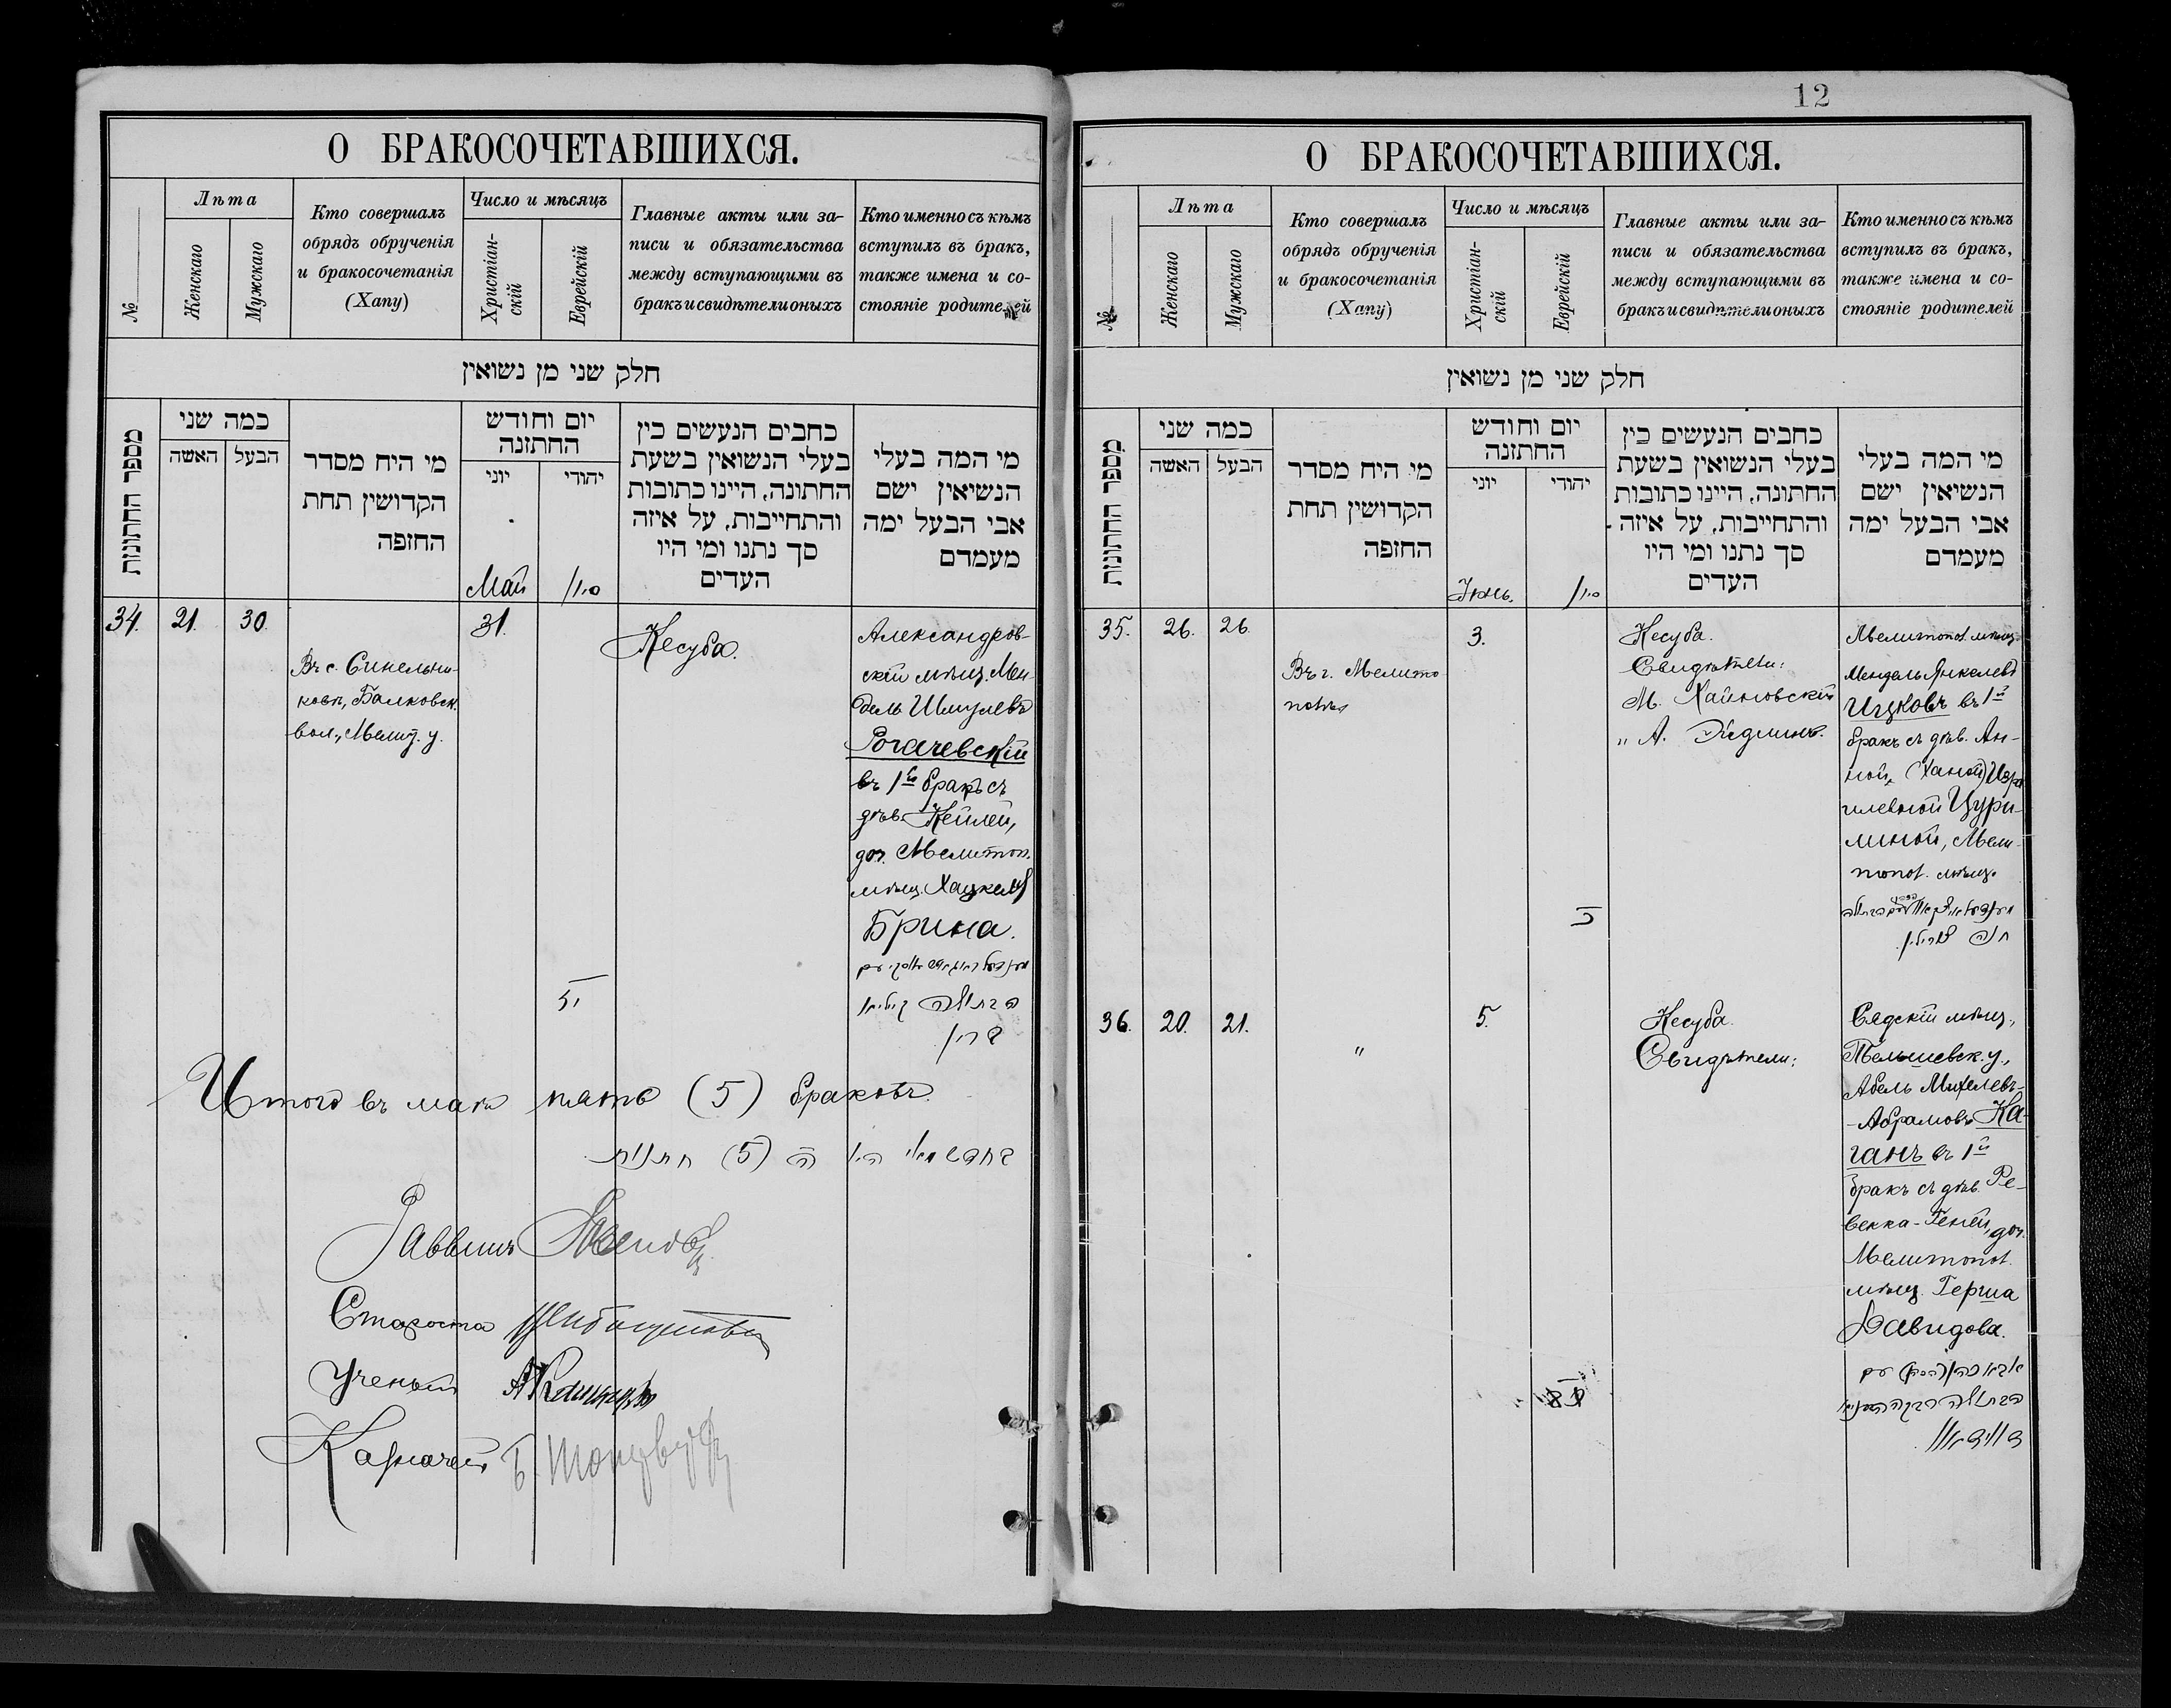 12
О БРАКОСОЧЕТАВШИХСЯ.
№
Лѣта
Женскаго
Мужскаго
Кто совершалъ
обрядъ обрученія
и бракосочетанія
(Хапу)
Число и мѣсяцъ
Христіан-
скій
Еврейскій
Главные акты или за-
писи и обязательства
между вступающими въ
бракъ и свидѣтели оныхъ
Кто именно съ кѣмъ
вступилъ въ бракъ,
также имена и со-
стояніе родителей
חלק שני מן נשואין
מספר החתונות
כמה שני
האשה
הבעל
מי היח מסדר
הקדושין תחת
החזפה
יום וחודש
החתזנה
יוני
יהודי
Май
סיון
כחבים הנעשים כין
בעלי הנשואין בשעת
החתונה, היינו כתובות
והתחייבות, על איזה
סך נתנו ומי היו
העדים
מי המה בעלי
הנשיאין ישם
אבי הבעל ימה
מעמדם
34.
21.
30.
Въ с. Синельни-
ковѣ, Балковск.
вол., Мелит. у.
31.
Кесуба.
Александров-
скій мѣщ. Мен-
дель Шмулевъ
Рогачевскій
въ 1й бракъ съ
дѣв. Кейлей,
доч. Мелитоп.
мѣщ. Хацкеля
Брина.
הבתולה קיילא
ברין
יז
Итого въ маѣ пять (5) браковъ.
בחדש מאי היו ה (5) חתונות
Раввинъ
Староста
Ученый
Казначей
О БРАКОСОЧЕТАВШИХСЯ.
№
Лѣта
Женскаго
Мужскаго
Кто совершалъ
обрядъ обрученія
и бракосочетанія
(Хапу)
Число и мѣсяцъ
Христіан-
скій
Еврейскій
Главные акты или за-
писи и обязательства
между вступающими въ
бракъ и свидѣтели оныхъ
Кто именно съ кѣмъ
вступилъ въ бракъ,
также имена и со-
стояніе родителей
חלק שני מן נשואין
מספר החתונות
כמה שני
האשה
הבעל
מי היח מסדר
הקדושין תחת
החזפה
יום וחודש
החתזנה
יוני
יהודי
Іюнь.
סיון
כחבים הנעשים כין
בעלי הנשואין בשעת
החתונה, היינו כתובות
והתחייבות, על איזה
סך נתנו ומי היו
העדים
מי המה בעלי
הנשיאין ישם
אבי הבעל ימה
מעמדם
35.
26.
26.
Въ г. Мелито
полѣ
3.
Кесуба.
Свидѣтели:
М. Хайновскій
" А.
Мелитопол. мѣщ.
Мендель Янкелевъ
Ицковъ въ 1й
бракъ съ дѣв. Ан-
ной, (Ханой) Изра
илевной Цури-
линой, Мели-
топол. мѣщ.
חנה צורילין
כ
36.
20.
21.
"
5.
Кесуба.
Свидѣтели:
Сядскій мѣщ.,
Тельшевск. у.,
Абель Михелевъ-
-Абрамовъ Ка-
ганъ въ 1й
бракъ съ дѣв. Ре-
векка-Геней, доч.
Мелитопол.
мѣщ. Герша
Давидова.